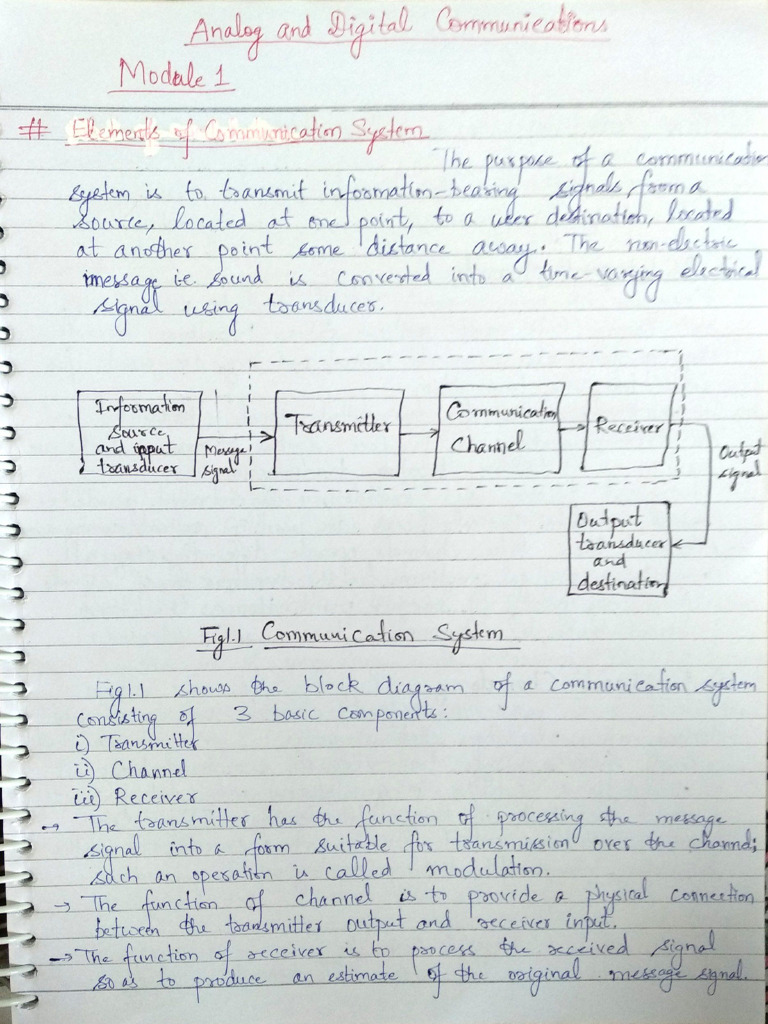 Analog and Digital Communications
Module 1
# Elements of Communication System
The purpose of a communication
system is to transmit information-bearing signals from a
source, located at one point, to a user destination, located
at another point some distance away. The non-electric
message i.e. sound is converted into a time-varying electrical
signal using transducer.
Information
source
and input
transducer
Message
signal
Transmitter
Communication
Channel
Receiver
Output
signal
Output
transducer
and
destination
Fig1.1 Communication System
Fig1.1 shows the block diagram of a communication system
consisting of 3 basic components:
i) Transmitter
ii) Channel
iii) Receiver
→ The transmitter has the function of processing the message
signal into a form suitable for transmission over the channel;
such an operation is called modulation.
→ The function of channel is to provide a physical connection
between the transmitter output and receiver input.
→ The function of receiver is to process the received signal
so as to produce an estimate of the original message signal.